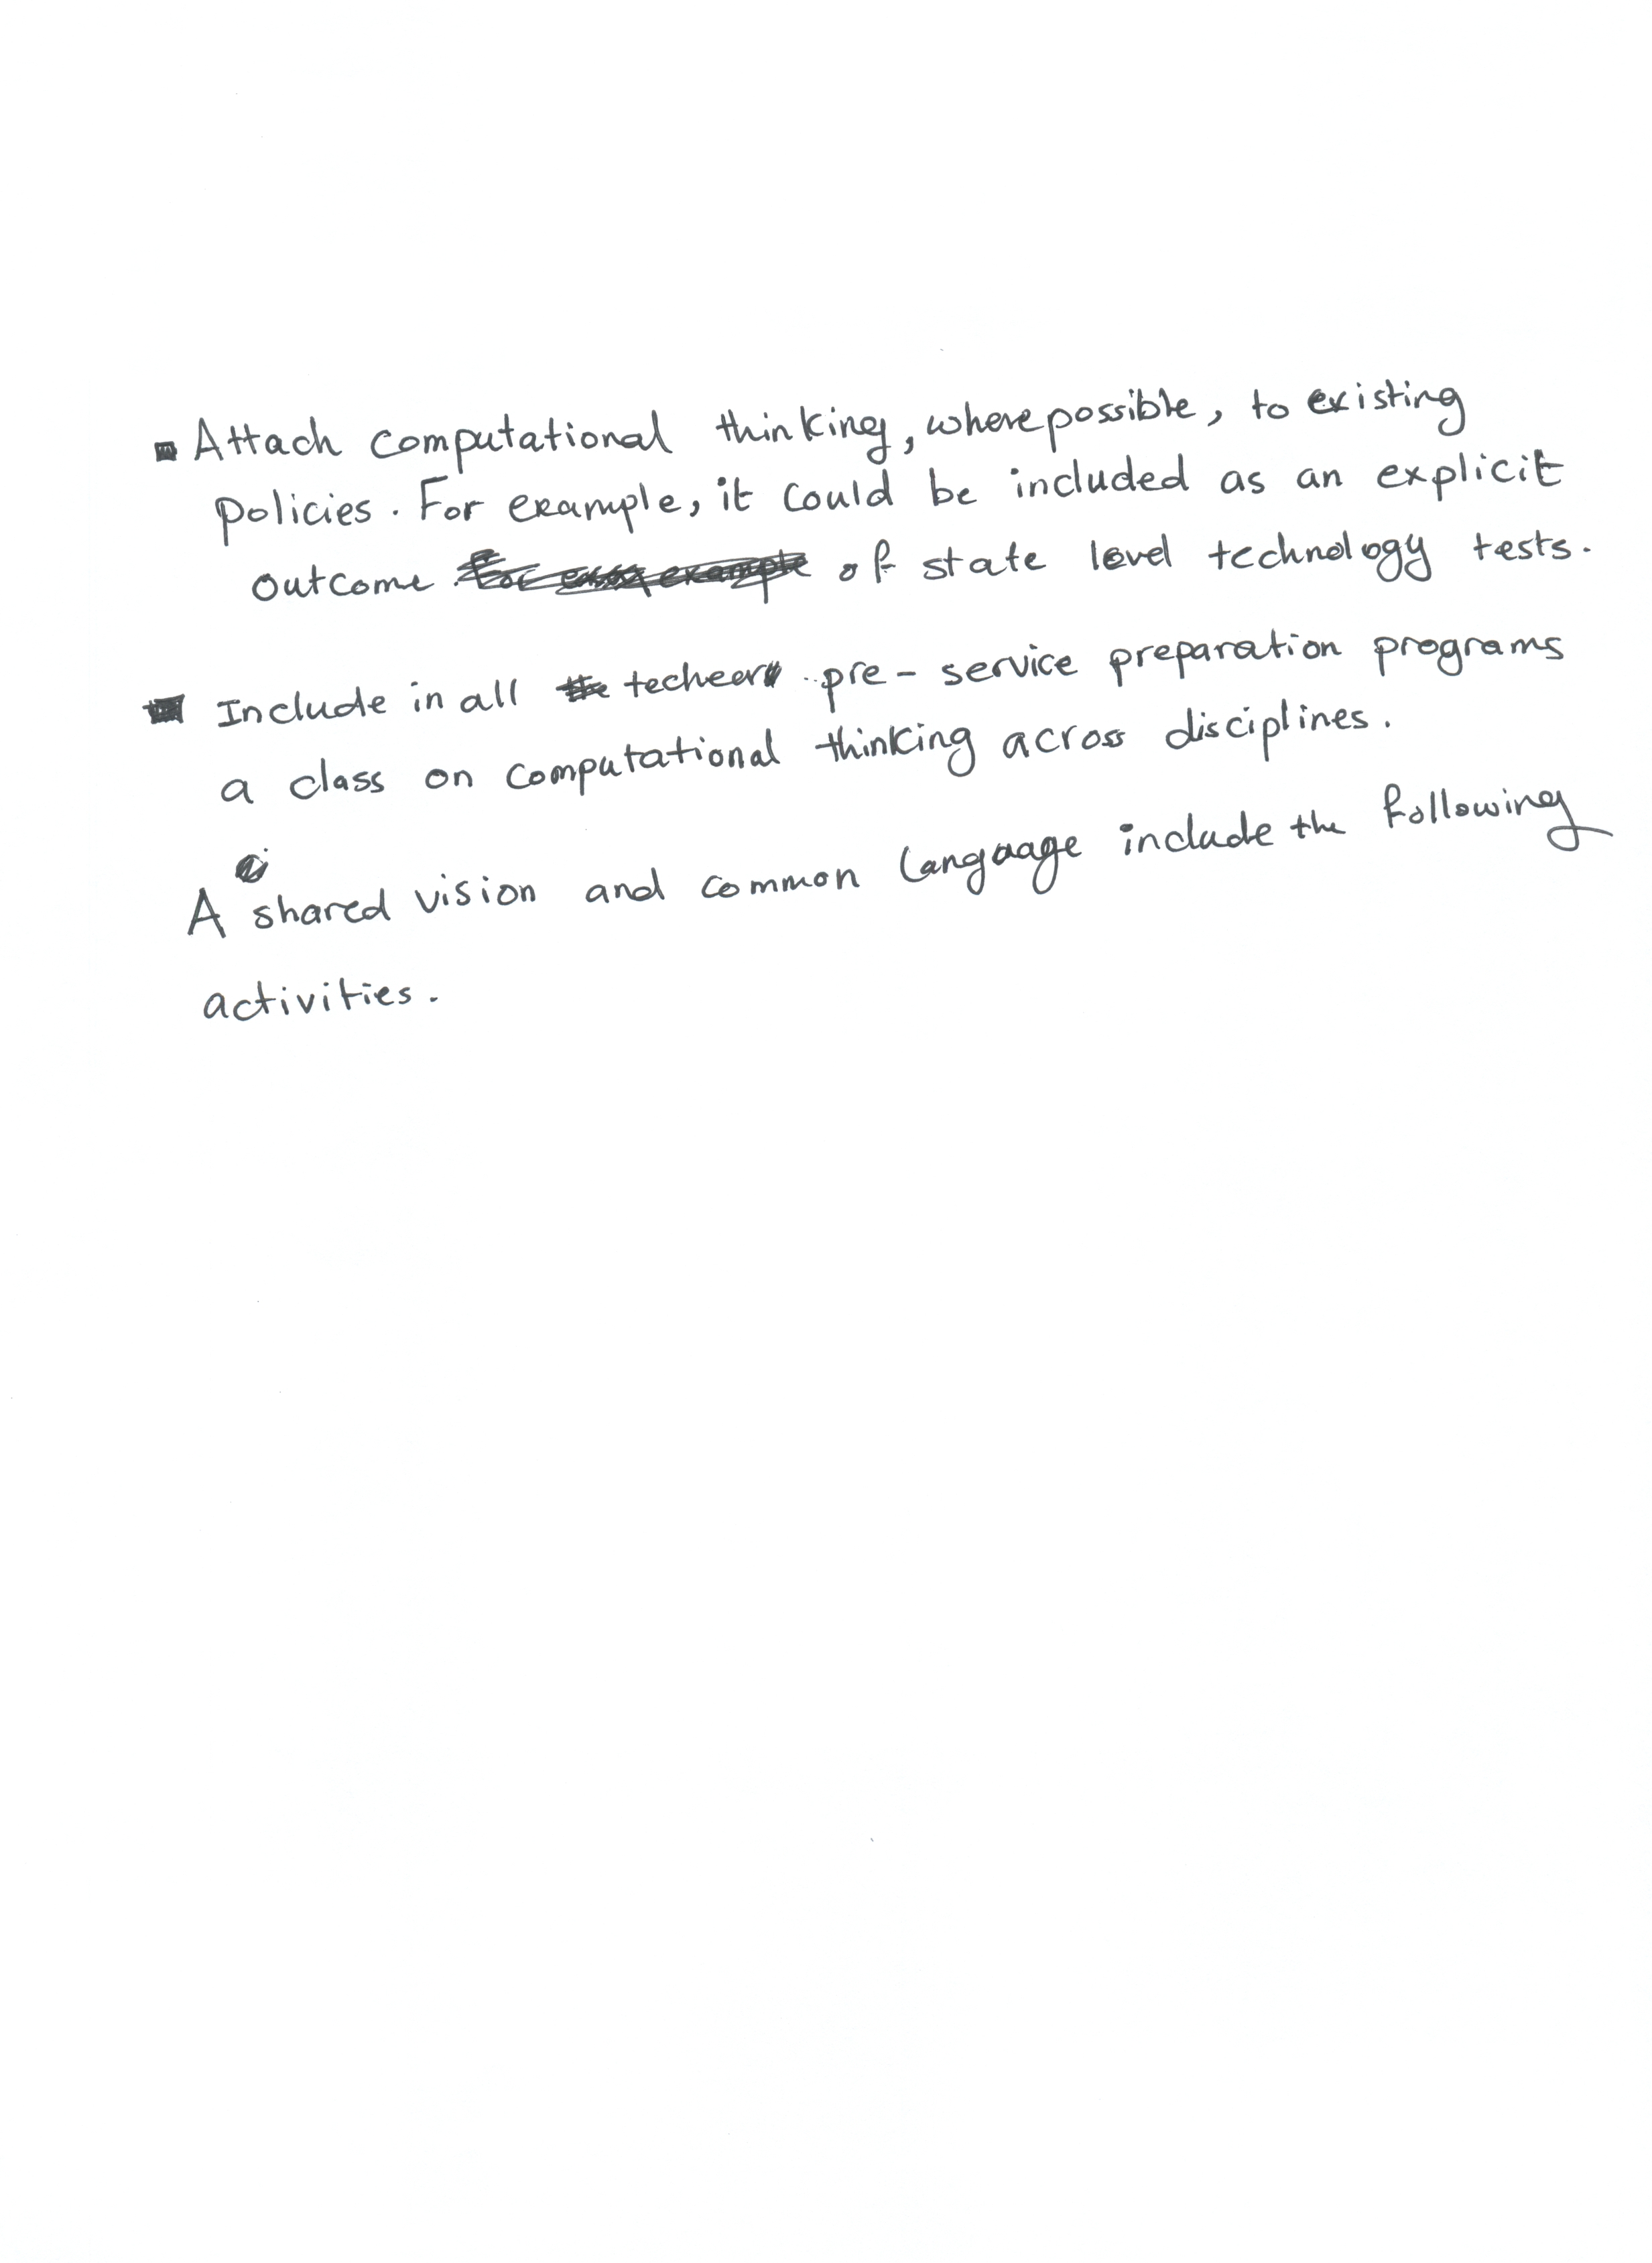 ▪ Attach computational thinking, where possible, to existing
policies. For example, it could be included as an explicit
outcome of state level technology tests.
▪ Include in all techeer pre-service preparation programs
a class on computational thinking across disciplines.
A shared vision and common language include the following
activities.